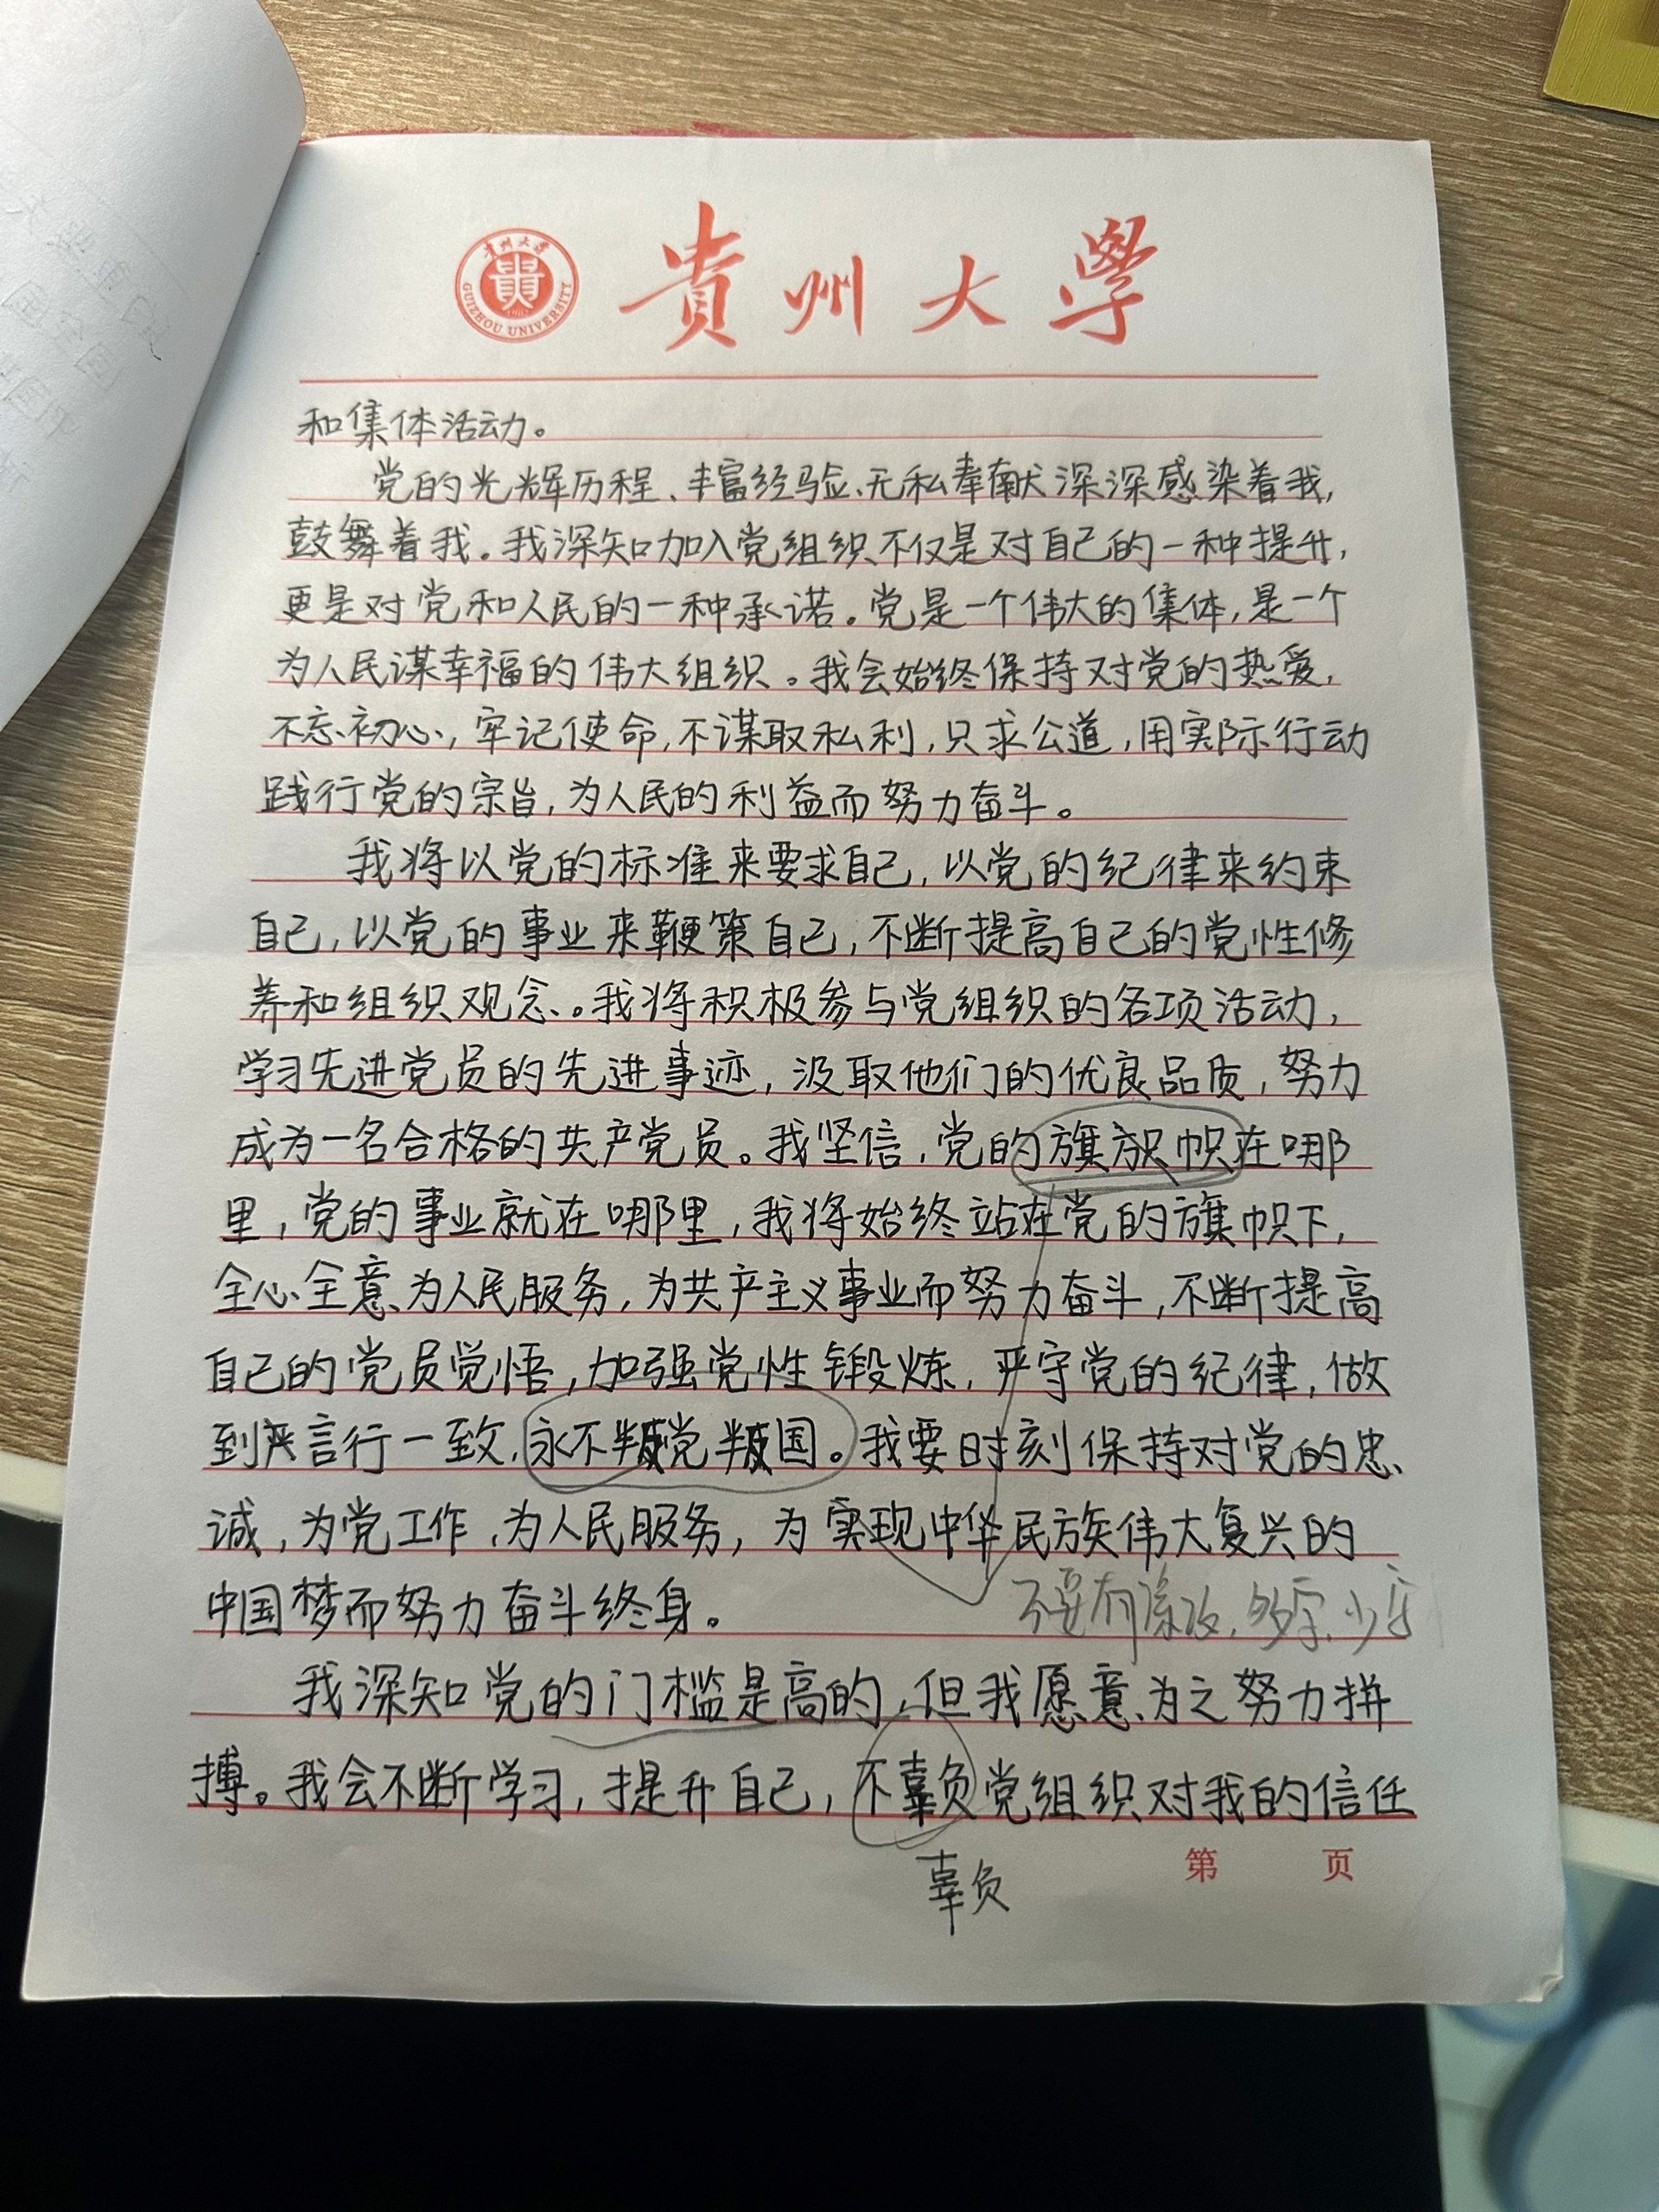 贵州大学
GUIZHOU UNIVERSITY
貴州大學
和集体活动。
党的光辉历程、丰富经验、无私奉献深深感染着我，
鼓舞着我。我深知加入党组织不仅是对自己的一种提升，
更是对党和人民的一种承诺。党是一个伟大的集体，是一个
为人民谋幸福的伟大组织。我会始终保持对党的热爱，
不忘初心，牢记使命，不谋取私利，只求公道，用实际行动
践行党的宗旨，为人民的利益而努力奋斗。
我将以党的标准来要求自己，以党的纪律来约束
自己，以党的事业来鞭策自己，不断提高自己的党性修
养和组织观念。我将积极参与党组织的各项活动，
学习先进党员的先进事迹，汲取他们的优良品质，努力
成为一名合格的共产党员。我坚信，党的旗帜在哪
里，党的事业就在哪里，我将始终站在党的旗帜下，
全心全意为人民服务，为共产主义事业而努力奋斗，不断提高
自己的党员觉悟，加强党性锻炼，严守党的纪律，做
到言行一致，永不叛党叛国。我要时刻保持对党的忠
诚，为党工作，为人民服务，为实现中华民族伟大复兴的
中国梦而努力奋斗终身。
不要有涂改，多字、少字
我深知党的门槛是高的，但我愿意为之努力拼
搏。我会不断学习，提升自己，不辜负党组织对我的信任
辜负
第 页